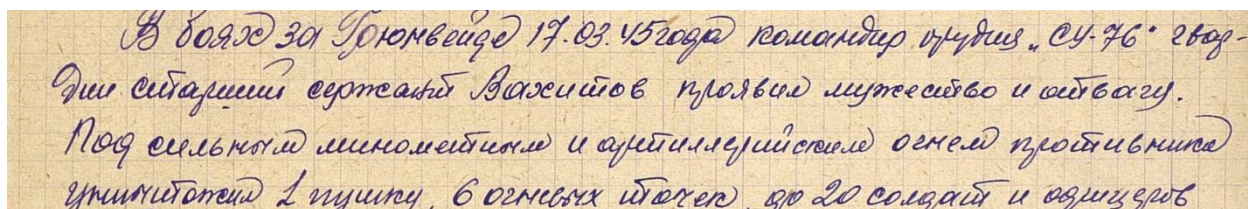 В боях за Грюнвейде 17.03.45 года командир орудия „СУ-76“ гвар-
дии старший сержант Вахитов проявил мужество и отвагу.
Под сильным минометным и артиллерийским огнем противника
уничтожил 1 пушку, 6 огневых точек, до 20 солдат и офицеров